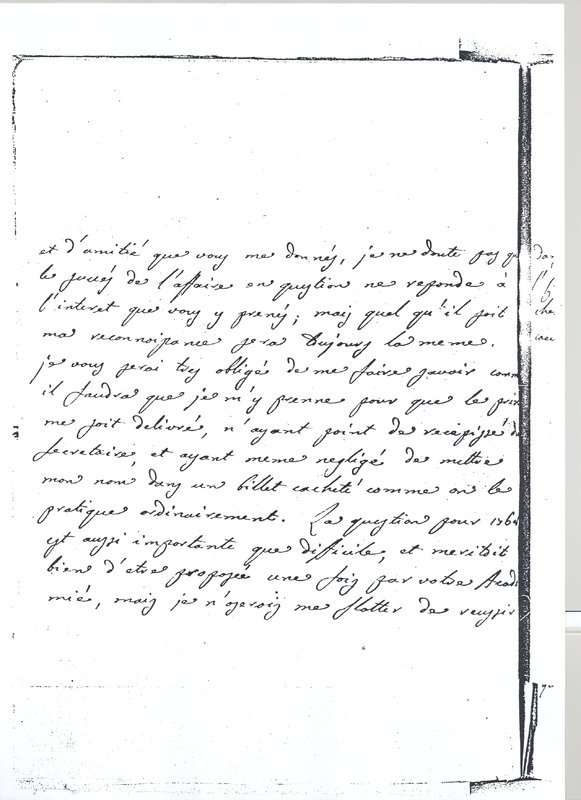 et d'amitié que vous me donnés, je ne doute pas qu
le succés de l'affaire en question ne reponde à
l'interet que vous y prenés; mais quel qu'il soit
ma reconnoissance sera toujours la meme.
je vous serai tres obligé de me faire savoir com
il faudra que je m'y prenne pour que le prix
me soit delivré, n'ayant point de recepissé du
secretaire et ayant meme negligé de mettre
mon nom dans un billet cacheté comme on le
pratique ordinairement. La question pour 1764
est aussi importante que difficile, et meritoit
bien d'etre proposée une fois par votre Acad
mié, mais je n'oserois me flatter de reussir